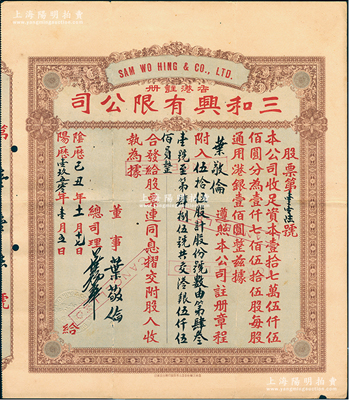 上海阳明拍卖
SAM WO HING & CO., LTD.
香港註册
三和興有限公司
股票第
號
本公司收足資本壹拾七萬伍仟伍
佰圓分為壹仟七佰伍拾伍股每股
通用港銀壹佰圓整茲據
葉敬倫 遵照本公司註册章程
附入伍拾伍股計股份號數由第肆叁
壹號至第肆捌伍號共
港銀伍仟伍
佰員整
合發給股票連同息摺交附股人收
執為據
董事 葉敬倫
總司理
陰歷己丑年十一月十七日
陽歷壹玖五零年壹月五日
給
上海阳明拍卖